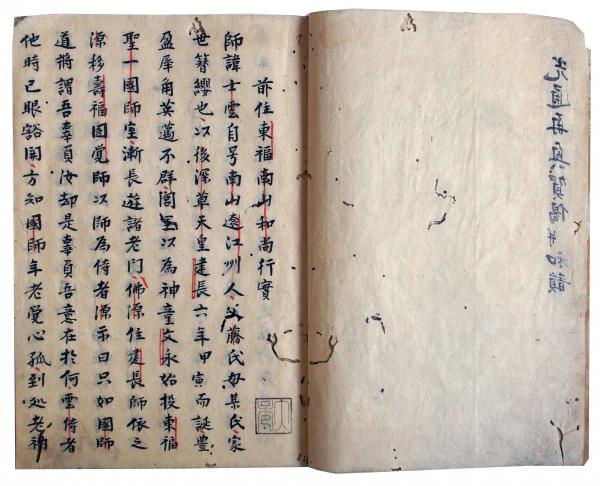 光通再真賀偈并和韻
前住東福南山和尚行實
師諱士雲自号南山遠江州人父藤氏母某氏家
世簪纓也以後深草天皇建長六年甲寅而誕豊
盈犀角英邁不群閭里以為神童文永始投東福
聖一國師室漸長遊諸老門佛源住建長師依之
源移壽福圓覚師以師為侍者源示曰只如國師
道將謂吾辜負汝却是辜負吾意在於何雲侍者
他時已眼豁開方知國師年老覚心孤到処老